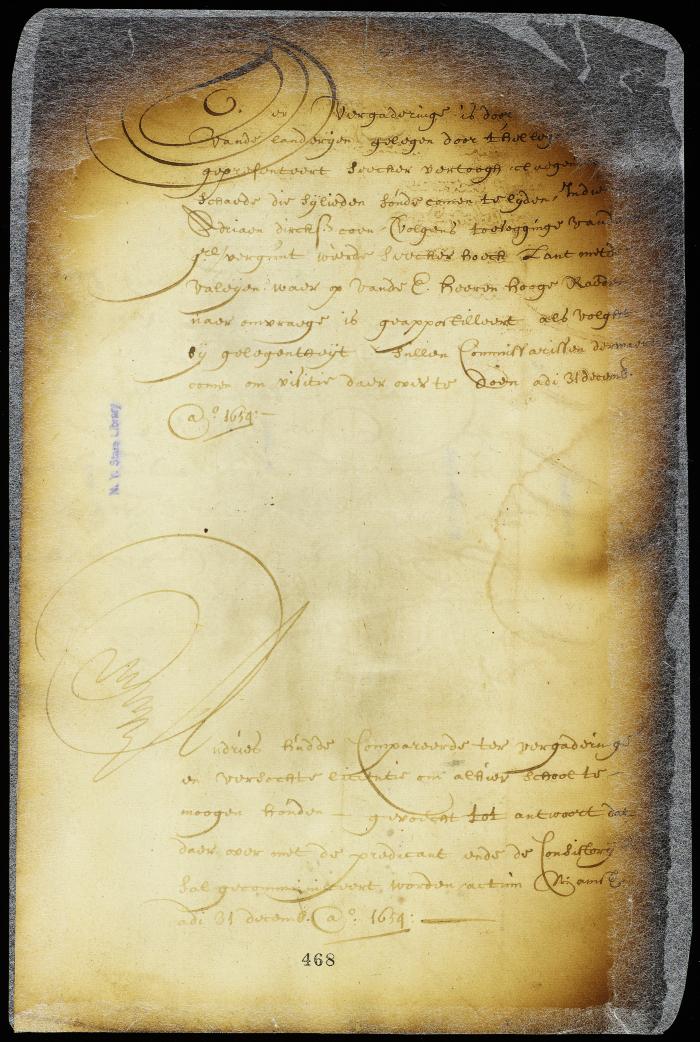 Ter Vergaderinge is door
vande landerijen gelegen door t helle
gepresenteert seecker vertoogh
schaede die sijlieden soude comen te lyden, Indie
Adriaen dircks coen Volgens toelegginge van
vergunt werde seecker hoeck Lant
Valeyen. waer op vande E. heeren hooge Raede
naer omvraege is geappostilleert als volght
bij gelegentheyt sullen Commissarissen derwaer
comen om visitie daer over te doen adi 31 decemb.
Ao. 1654:
N. Y. State Library
Andries hudde Compareerde ter vergaderinge
en versochte licentie om alhier school te
moogen houden gevoecht tot antwoort dat
daer over met de predicant ende de Consistory
sal gecommuniceert worden actum Amst
adi 31 decemb. Ao. 1654:
468